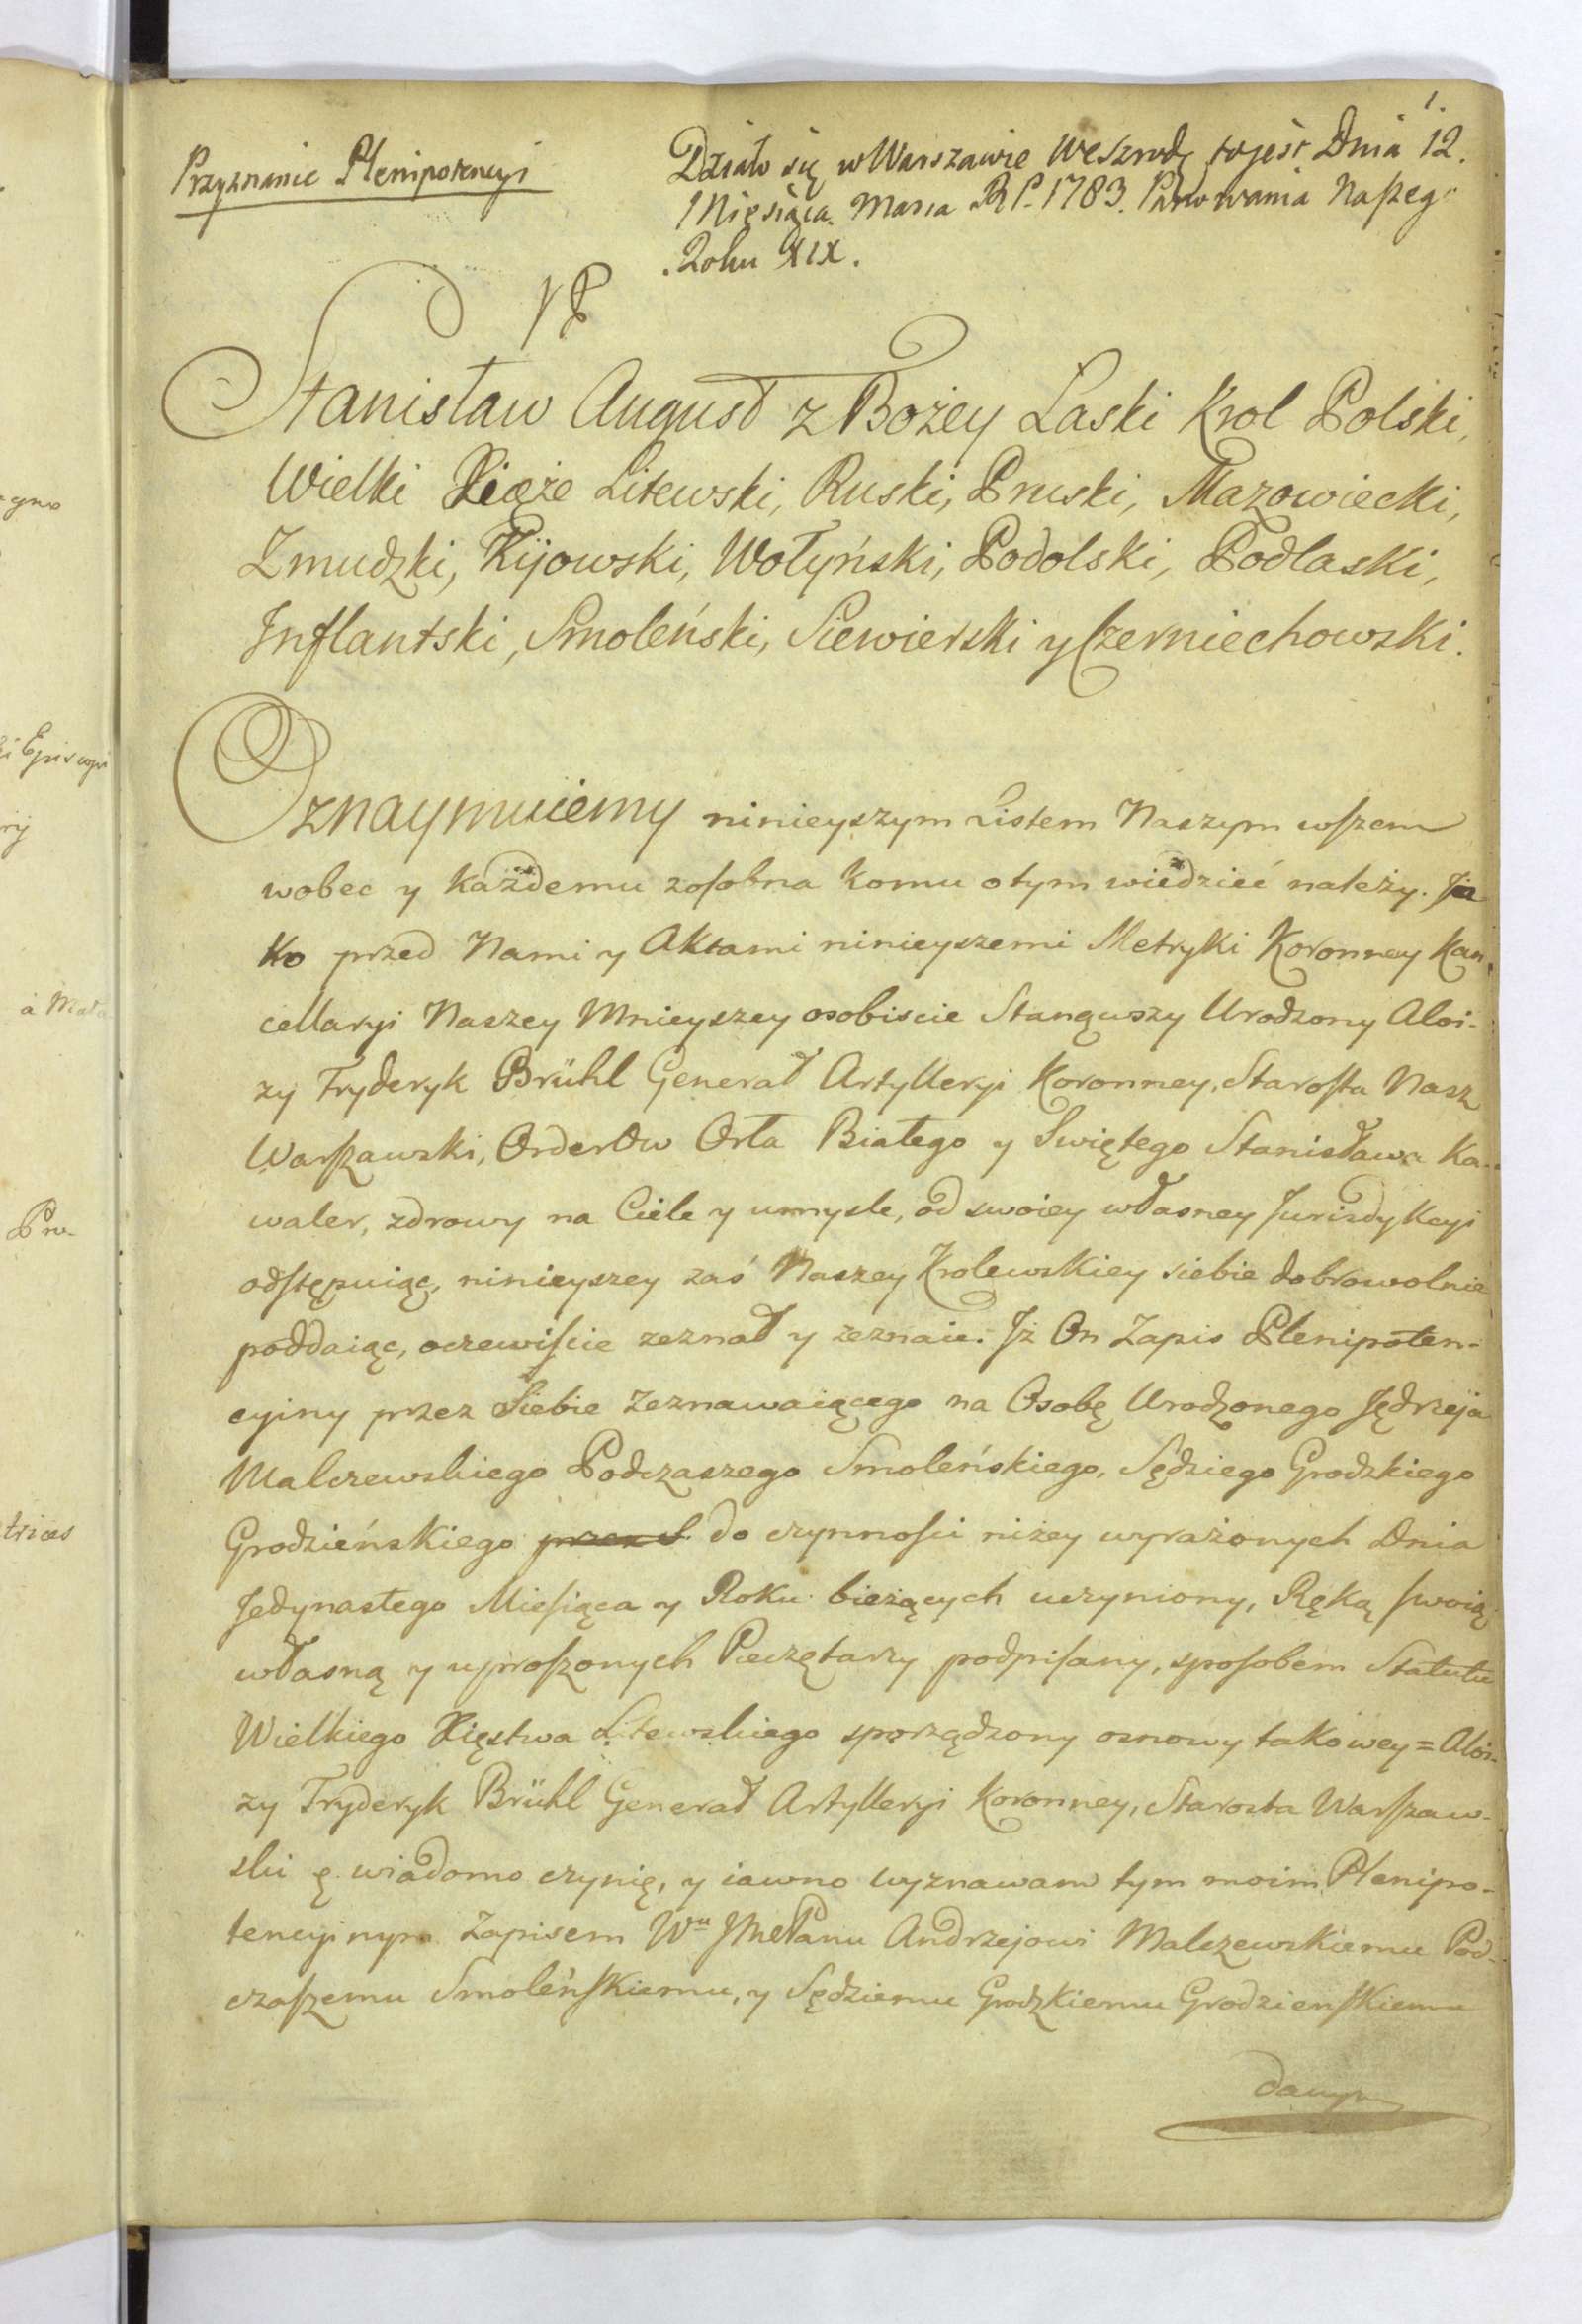 1.
Przyznanie Plenipotencyi
Działo się w Warszawie We Szrodę to jest Dnia 12.
Miesiąca Marca RP. 1783. Panowania Naszego
Roku XIX.
Stanisław August z Bożey Laski Krol Polski,
Wielki Xiąże Litewski, Ruski, Pruski, Mazowiecki,
Zmudzki, Kijowski, Wołyński, Podolski, Podlaski,
Inflantski, Smoleński, Siewierski y Czerniechowski.
Oznaymuiemy ninieyszym Listem Naszym wszem
wobec y każdemu zosobna komu o tym wiedzieć należy. Ja
ko przed Nami y Aktami ninieyszemi Metryki Koronney Kan,
cellaryi Naszey Mnieyszey osobiscie Stanąwszy Urodzony Aloi-
zy Fryderyk Brühl Generał Artylleryi Koronney, Starosta Nasz
Warszawski, Orderow Orła Białego y Swiętego Stanisława Ka-
waler, zdrowy na Ciele y umysle, od swoiey własney Jurisdykcyi
odstępuiąc, ninieyszey zaś Naszey Krolewskiey siebie dobrowolnie
poddaiąc, oczewiście zeznał y zeznaie. Jż On Zapis Plenipoten-
cyiny przez Siebie Zeznawaiącego na Osobę Urodzonego Jędrzeja
Malczewskiego Podczaszego Smoleńskiego, Sędziego Grodzkiego
Grodzieńskiego przez S do czynności niżey wyrażonych Dnia
Jedynastego Miesiąca y Roku bieżących uczyniony, Ręką swoią
własną y uproszonych Pieczętarzy podpisany, sposobem Statutu
Wielkiego Xięstwa Litewskiego sporządzony osnowy takowey = Aloi-
zy Fryderyk Brühl Generał Artylleryi Koronney, Starosta Warszaw-
ski wiadomo czynię, y iawno wyznawam tym moim Plenipo-
tencyinym Zapisem Wu JMePanu Andrzejowi Malczewskiemu Pod-
czaszemu Smoleńskiemu, y Sędziemu Grodzkiemu Grodzienskiemu
danym
gno
ri Episcopi
rij
a Mał
Pru-
trices